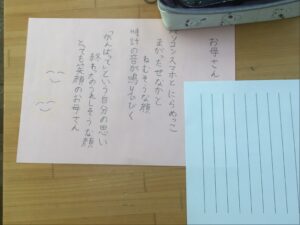 お母さん
パソコンスマホとにらめっこ
まがったせなかと
ねむそうな顔
時計の音が鳴りひびく
「がんばって」という自分の思い
終わったのうれしそうな顔
とても笑顔のお母さん